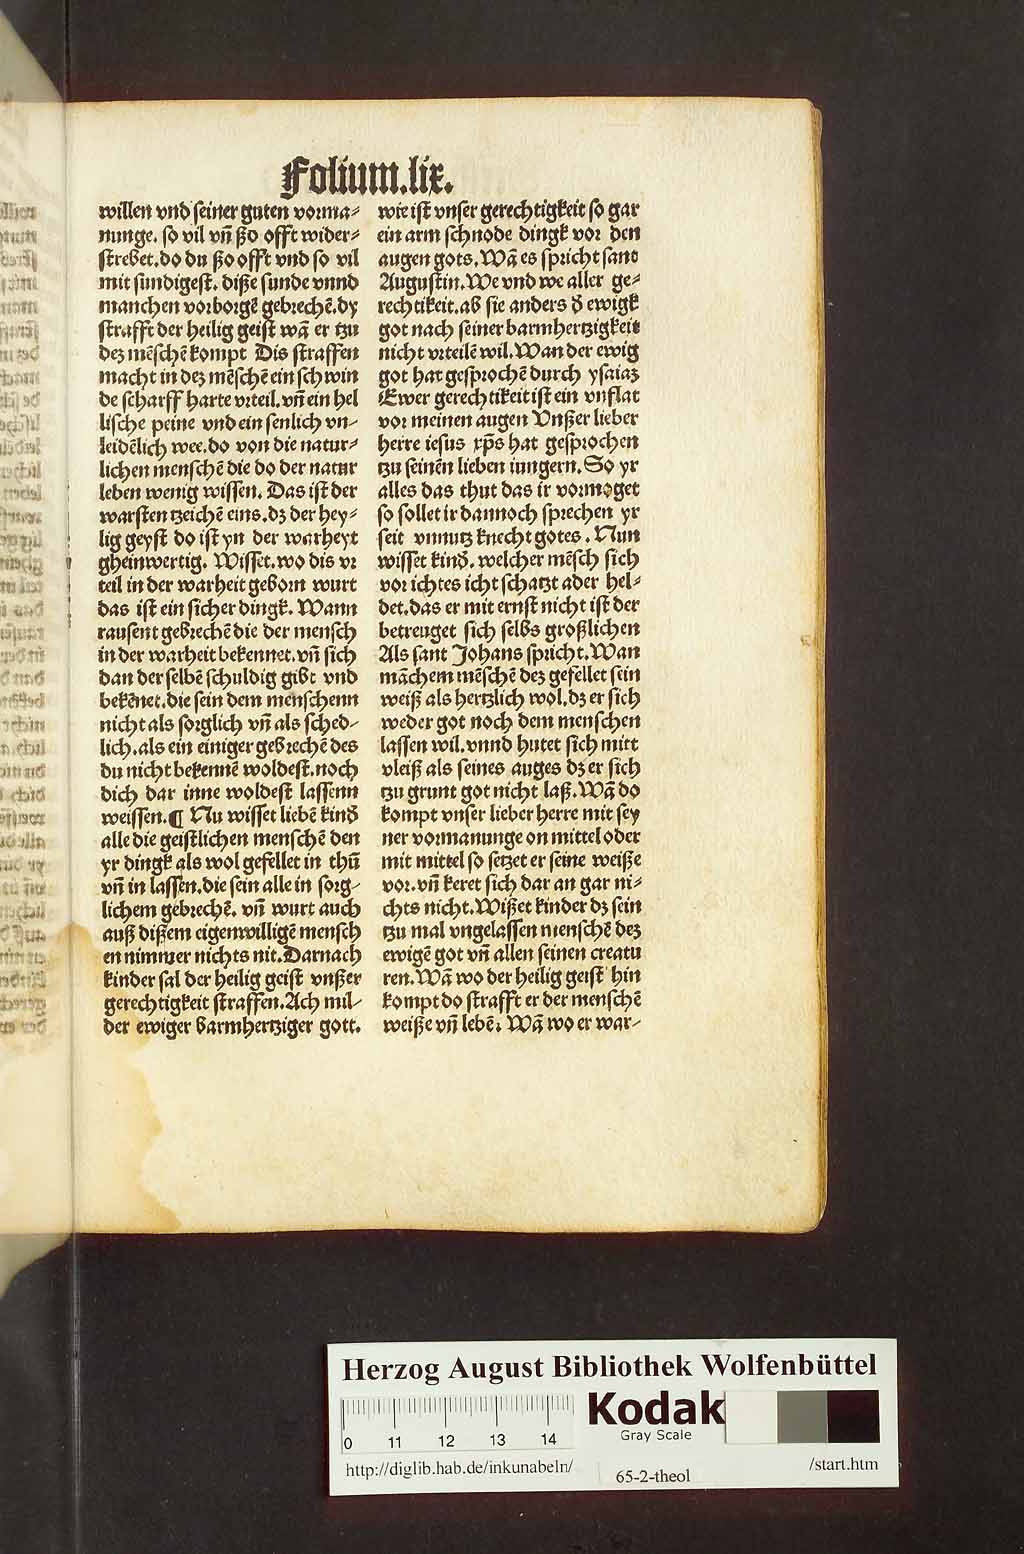 Folium.lix.
willen vnd seiner guten vorma⸗
nunge. so vil vn̄ ßo offt wider⸗
strebet.do du ßo offt vnd so vil
mit sundigest. diße sunde vnnd
manchen vorborgē gebrechē.dy
strafft der heilig geist wā er tzu
dez mēschē kompt Dis straffen
macht in dez mēschē ein schwin
de scharff harte vrteil.vn̄ ein hel
lische peine vnd ein senlich vn⸗
leidēlich wee.do von die natur⸗
lichen menschē die do der natur
leben wenig wissen. Das ist der
warsten tzeichē eins.dz der hey⸗
lig geyst do ist yn der warheyt
gheinwertig. Wisset.wo dis vr
teil in der warheit geborn wurt
das ist ein sicher dingk. Wann
tausent gebrechē die der mensch
in der warheit bekennet.vn̄ sich
dan der selbē schuldig gibt vnd
bekēnet.die sein dem menschenn
nicht als sorglich vn̄ als sched⸗
lich.als ein einiger gebrechē des
du nicht bekennē woldest.noch
dich dar inne woldest lassenn
weissen.¶ Nu wisset liebē kind̄
alle die geistlichen menschē den
yr dingk als wol gefellet in thū
vn̄ in lassen.die sein alle in sorg⸗
lichem gebrechē. vn̄ wurt auch
auß dißem eigenwilligē mensch
en nimmer nichts nit.Darnach
kinder sal der heilig geist vnßer
gerechtigkeit straffen.Ach mil⸗
der ewiger barmhertziger gott.
wie ist vnser gerechtigkeit so gar
ein arm schnode dingk vor den
augen gots.Wā es spricht sant
Augustin.We vnd we aller ge⸗
rechtikeit.ab sie anders d̄ ewigk
got nach seiner barmhertzigkeit
nicht vrteilē wil.Wan der ewig
got hat gesprochē durch ysaiaz
Ewer gerechtikeit ist ein vnflat
vor meinen augen Vnßer lieber
herre iesus xp̄s hat gesprochen
tzu seinēn lieben iungern.So yr
alles das thut das ir vormoget
so sollet ir dannoch sprechen yr
seit vnnutz knecht gotes. Nun
wisset kind̄. welcher mēsch sich
vor ichtes icht schatzt ader hel⸗
det.das er mit ernst nicht ist der
betreuget sich selbs großlichen
Als sant Johans spricht.Wan
māchem mēschē dez gefellet sein
weiß als hertzlich wol.dz er sich
weder got noch dem menschen
lassen wil.vnnd hutet sich mitt
vleiß als seines auges dz er sich
tzu grunt got nicht laß.Wā do
kompt vnser lieber herre mit sey
ner vormanunge on mittel oder
mit mittel so setzet er seine weiße
vor.vn̄ keret sich dar an gar ni⸗
chts nicht.Wißet kinder dz sein
tzu mal vngelassen menschē dez
ewigē got vn̄ allen seinen creatu
ren.Wā wo der heilig geist hin
kompt do strafft er der menschē
weiße vn̄ lebē. Wā wo er war⸗
Herzog August Bibliothek Wolfenbüttel
0 11 12 13 14
Kodak
Gray Scale
http://diglib.hab.de/inkunabeln/
65-2-theol
/start.htm